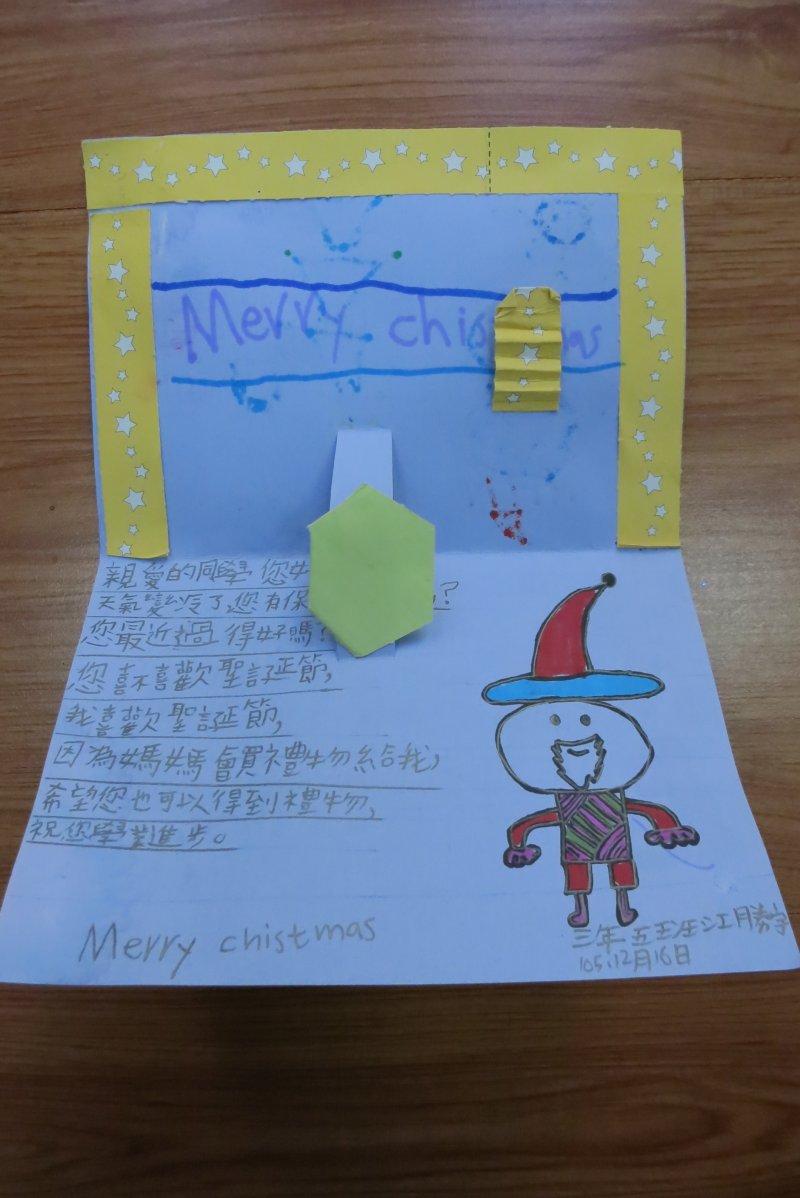 Merry chis mas
親愛的同學 您
天氣變冷了,您有保 ?
您最近過得好嗎?
您喜不喜歡聖誕節,
我喜歡聖誕節,
因為媽媽會買禮物給我,
希望您也可以得到禮物,
祝您學業進步。
Merry chistmas
三年五班
105.12月16日